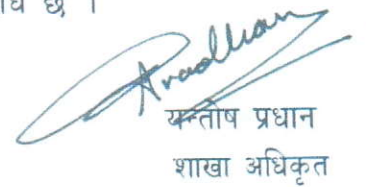 छ ।
Pradhan
यन्तोष प्रधान
शाखा अधिकृत